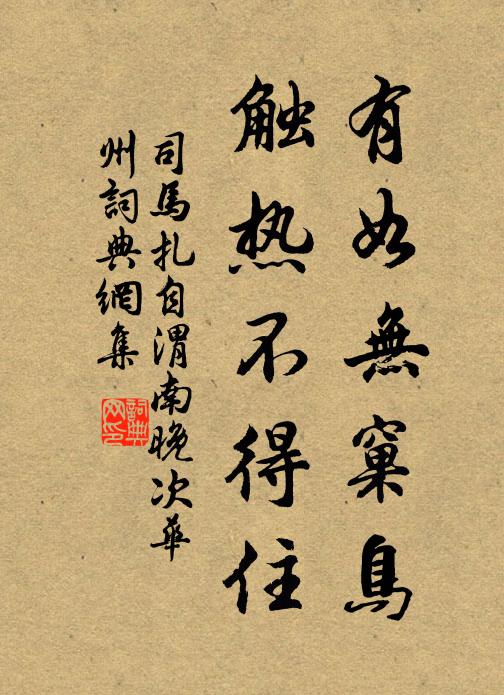 有如無窠鳥
触热不得住
司馬扎自渭南晚次華
州詞典網集
詞典
网印